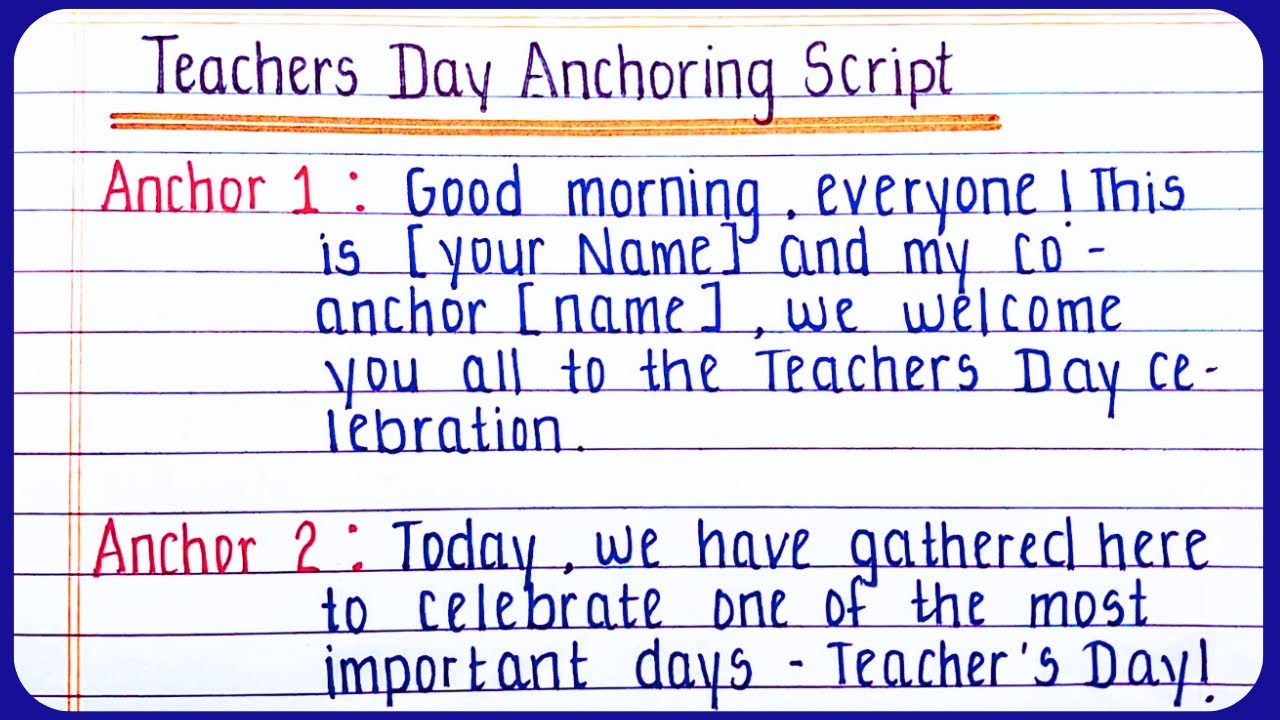 Teachers Day Anchoring Script
Anchor 1 : Good morning, everyone! This
is [your Name] and my co-
anchor [name], we welcome
you all to the Teachers Day ce-
lebration.
Anchor 2 : Today, we have gathered here
to celebrate one of the most
important days - Teacher's Day!